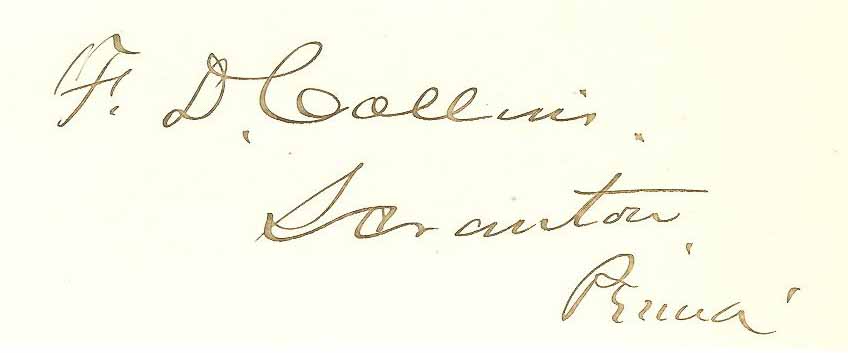 F. D. Collins.
Scranton,
Penna